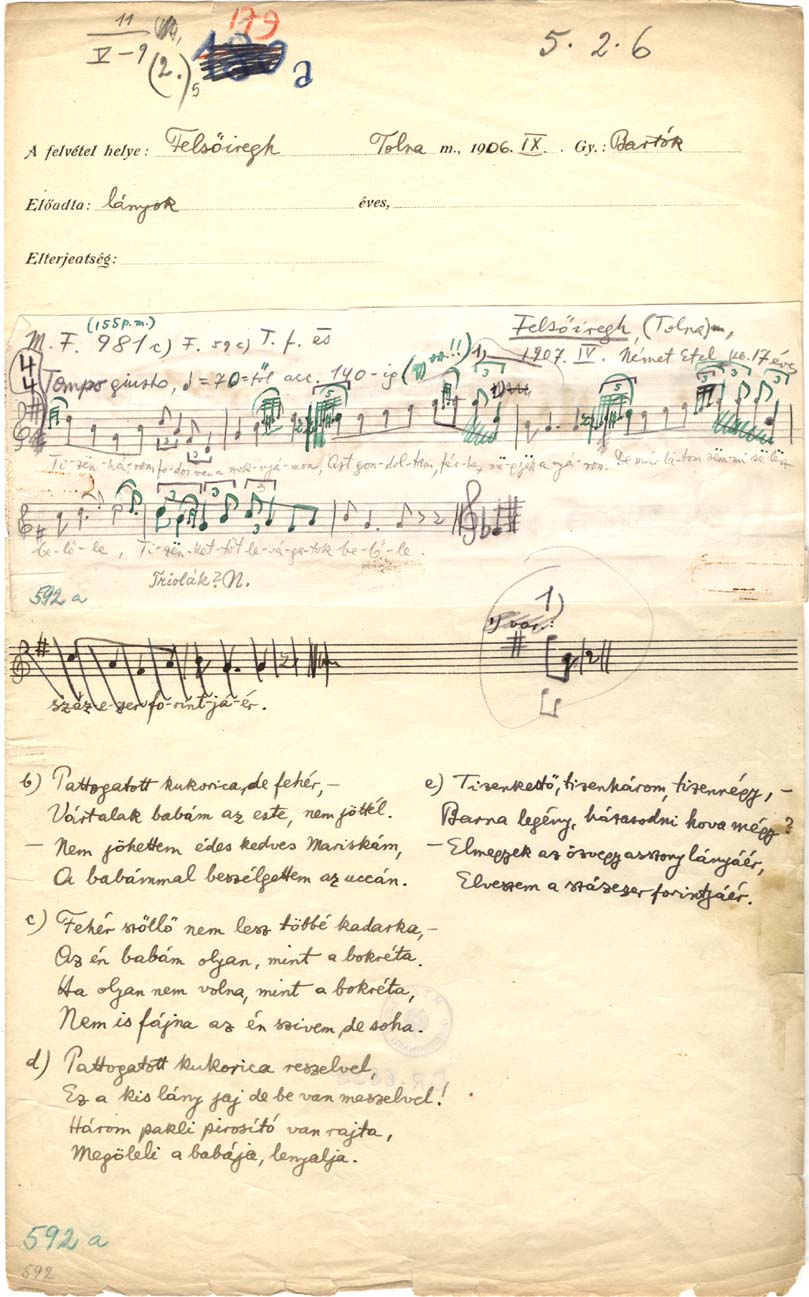 11
V-9
(2.)5
179
a
5. 2. 6
A felvétel helye: Felsőiregh Tolna m., 1906. IX. Gy.: Bartók
Előadta: lányok éves,
Elterjedtség:
(155 p.m.)
M. F. 981 c) F. 59 c) T. f. és
Felsőiregh, (Tolna) m,
1, 1907. IV. Német Etel 17 éves
4
4
Tempo giusto, ♩=70-től acc. 140-ig
Ti-zën-három fo-dor van a rok-lyá-mon, Azt gon-dol-tam, fér-hez mëgyëk a nyá-ron. De már lá-tom sëm-mi së lësz
be-lő-le, Ti-zën-ket-tőt le-vá-ga-tok be-lő-le.
Triolák? N.
592 a
1)
1) var.:
száz-e-zer fo-rint-já-ér.
b) Pattogatott kukorica, de fehér,-
Vártalak babám az este, nem jöttél.
- Nem jöhettem édes kedves Mariskám,
A babámmal beszélgettem az uccán.
c) Fehér szöllő nem lesz többé kadarka,-
Az én babám olyan, mint a bokréta.
Ha olyan nem volna, mint a bokréta,
Nem is fájna az én szivem, de soha.
d) Pattogatott kukorica reszelvel,
Ez a kis lány jaj de be van meszelvel!
Három pakli pirosító van rajta,
Megöleli a babája, lenyalja.
e) Tizenkettő, tizenhárom, tizennégy,-
Barna legény, házasodni hova mégy?
- Elmegyek az özvegyasszony lányáér,
Elveszem a százezer forintjáér.
592 a
592